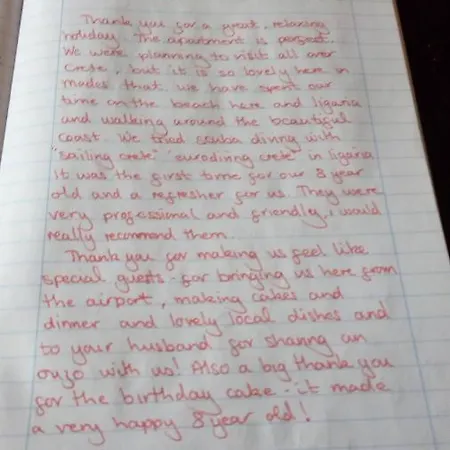 Thank you for a great, relaxing
holiday. The apartment is perfect.
We were planning to visit all over
Crete, but it is so lovely here in
mades that we have spent our
time on the beach here and ligaria
and walking around the beautiful
coast. We tried scuba diving with
"sailing crete" "eurodiving crete" in ligaria
It was the first time for our 8 year
old and a refresher for us. They were
very professional and friendly, i would
really recommend them.
Thank you for making us feel like
special guests - for bringing us here from
the airport, making cakes and
dinner and lovely local dishes and
to your husband for sharing an
ouzo with us! Also a big thank you
for the birthday cake - it made
a very happy 8 year old!